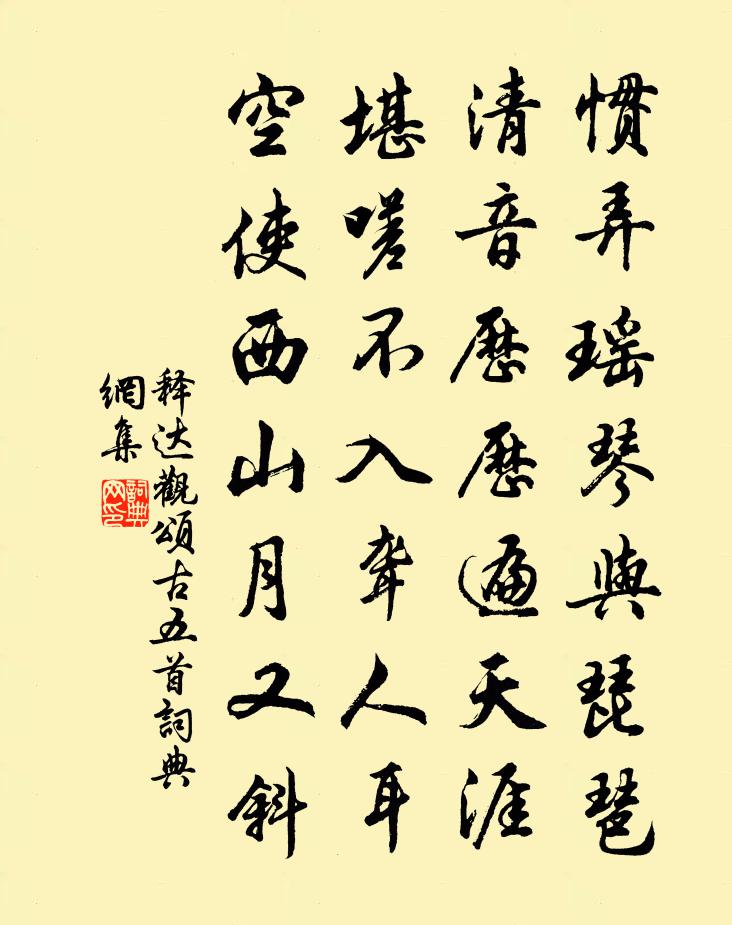 惯弄瑶琴與琵琶
清音歷歷遍天涯
堪嗟不入聋人耳
空使西山月又斜
释达觀頌古五首詞典
網集
詞典
网印